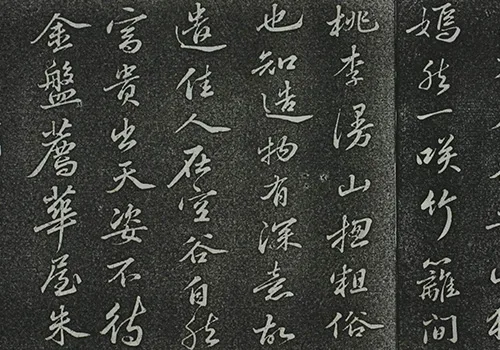 嫣然一笑竹籬間
桃李漫山揔粗俗
也知造物有深意故
遣佳人在空谷自然
富貴出天姿不待
金盤薦華屋朱